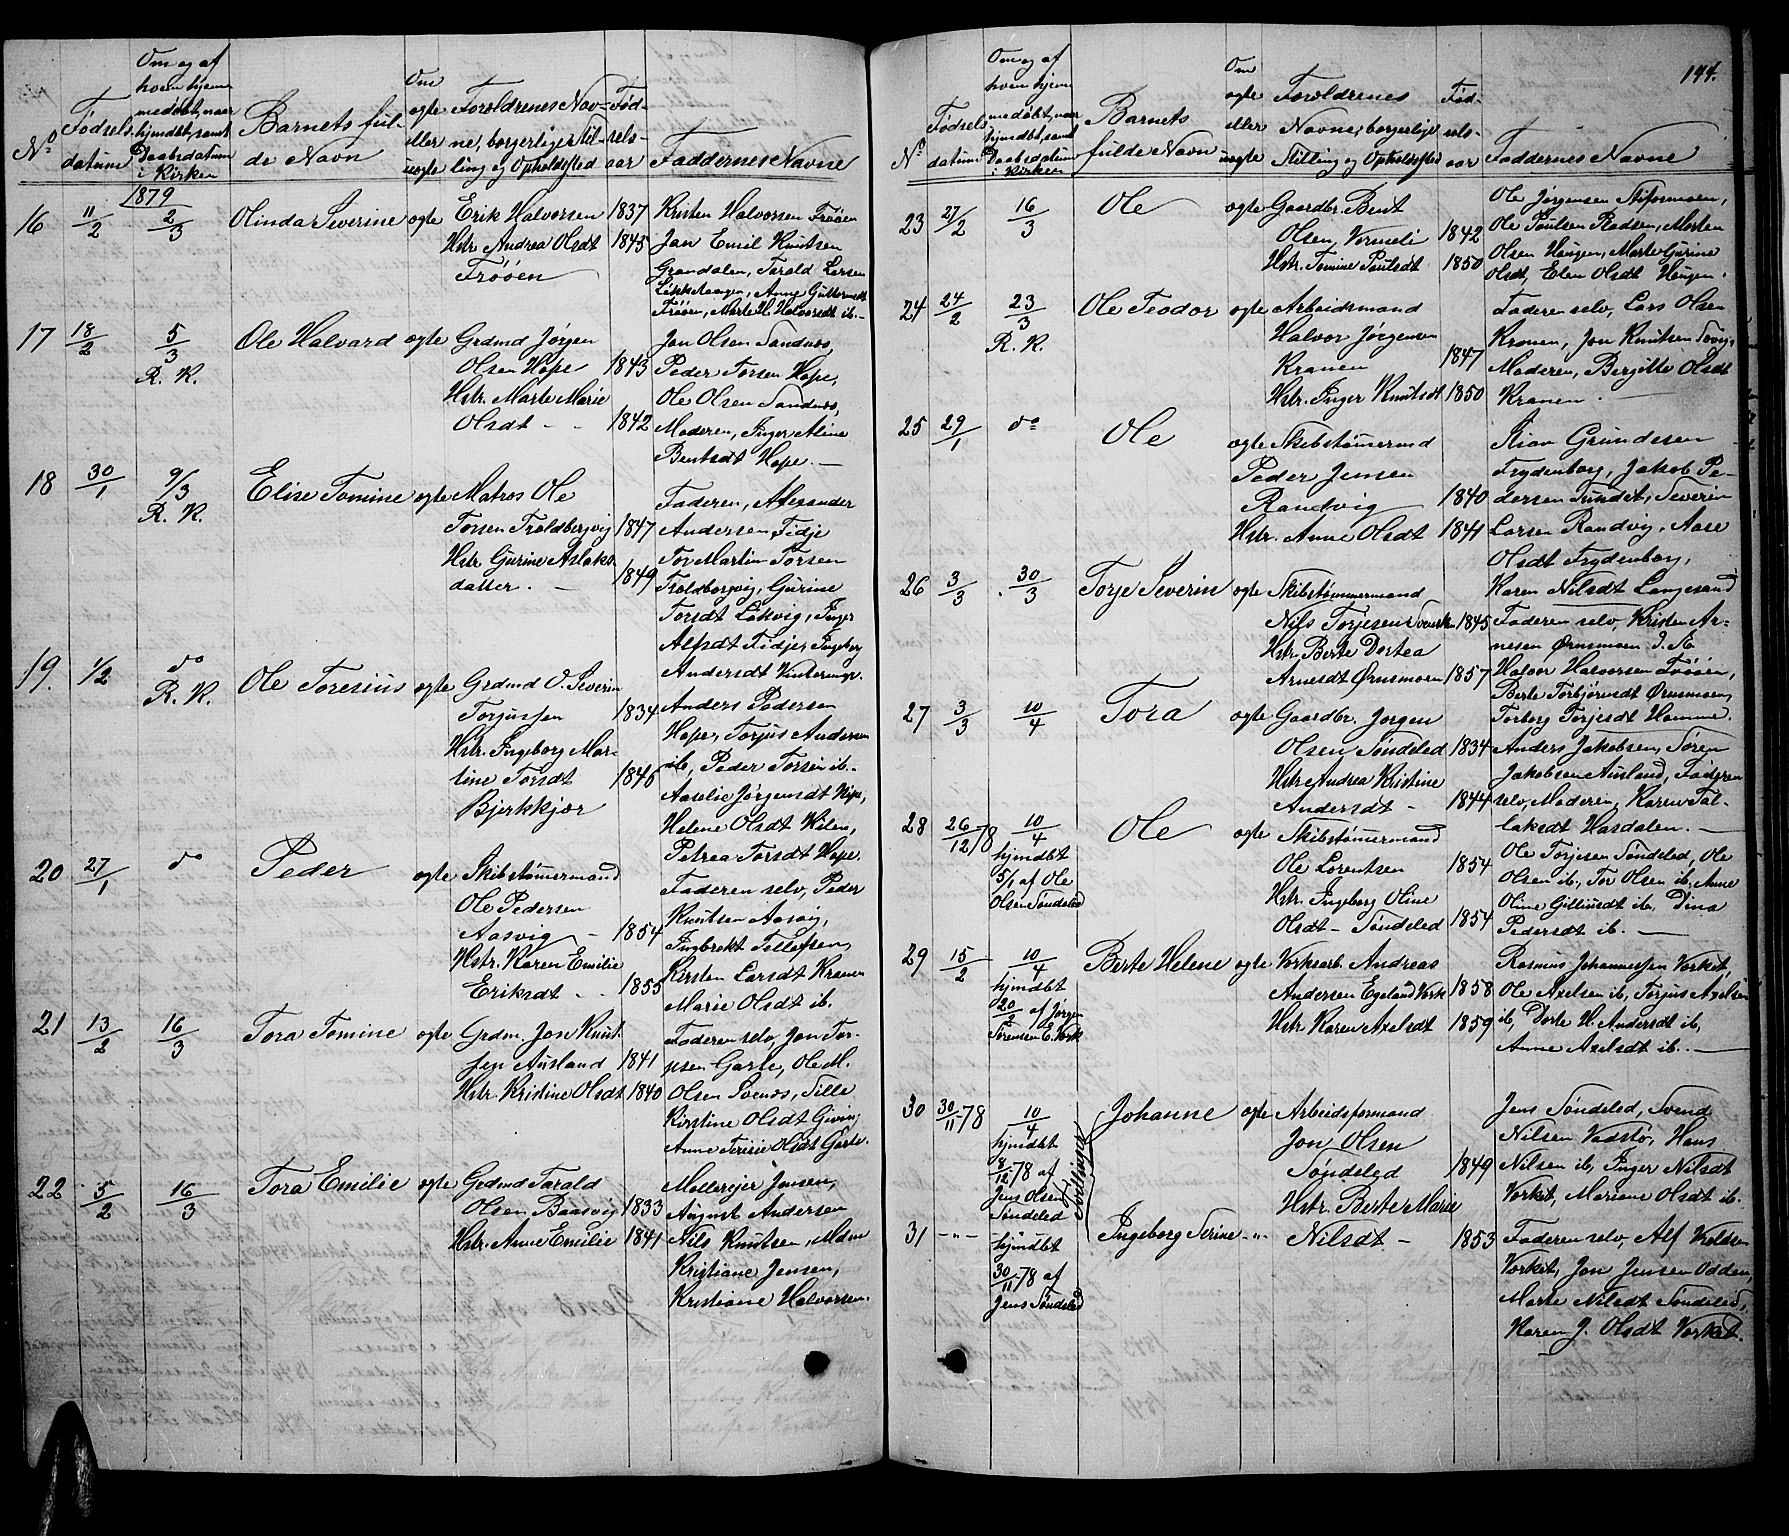 No
Fødsels
datum
Om og af
hvem hjem
medøbt, naar
hjmdbt, samt
Daabsdatum
i Kirken
Barnets ful-
de Navn
Om
ægte
eller
uægte
Forældrenes Nav-
ne, borgerlige Stil-
ling og Opholdssted
Fød-
sels-
aar
Faddernes Navne
1879
16 11/2 2/3 Olinda Severine ægte
Erik Halvorsen 1837
Hstr Andrea Olsdt 1845
Frøöen
Kristen Halvorsen Frøöen
Jan Emil Knutsen
Grændalen, Tarald Larsen
Anne Guttormsdt
Frøöen, Marte H. Halvorsdt ib. —
17 18/2 5/3 R. K. Ole Halvard ægte
Grdmd Jørgen
Olsen Hope 1843
Hstr. Marte Marie
Olsdt - - 1842
Jan Olsen Sandnes,
Peder Torsen Hope,
Ole Olsen Sandnes,
Moderen, Inger Aline
Bentsdt Hope. —
18 30/1 9/3 R. K. Elise Tomine ægte
Matros Ole
Torsen Troldbergvig 1847
Hstr Gurine Aslaks-
datter. - 1849
Faderen, Alexander
Andersen Fidje
Tor Martin Torsen
Troldbergvig, Gurine
Torsdt Lakvig, Inger
Alfsdt Fidje, Ingeborg
Andersdt
19. 1/2 do R. K. Ole Toresius ægte
Grdmd O. Severin
Torjussen 1834
Hstr. Ingeborg Mar-
tine Torsdt 1846
Bjerkkjær
Anders Pedersen
Hope, Torjus Andersen
ib, Peder Torsen ib. -
Aaselie Jørgensdt Hope,
Helene Olsdt Kilen,
Petrea Torsdt Hope.
20 27/1 do Peder ægte
Skibstømermand
Ole Pedersen
Aasvig - 1854
Hstr. Karen Emilie
Eriksdt - - 1855
Faderen selv, Peder
Knutsen Aasvig,
Ingbrekt Tellefsen,
Kirsten Larsdt Kranen
Marie Olsdt ib.
21 13/2 16/3 Tora Tomine ægte
Grdm. Jon Knut-
sen Ausland 1841
Hstr. Kristine Olsdt 1840
Faderen selv, Jon Tor-
jusen Garte, Ole M.
Olsen Svenes, Tille
Kirstine Olsdt
Anne Teresie Olsdt Garte.
22 5/2 16/3 Tora Emilie ægte
Grdmd Tarald
Olsen Baasvig 1833
Hstr. Anne Emilie 1841
Møllerejer Jensen,
August Andersen
Nils Knutsen,
Kristiane Jensen,
Kristiane Halvorsen.
144.
No
Fødsels
datum
Om og af
hvem hjem
medøbt, naar
hjmdbt, samt
Daabsdatum
i Kirken
Barnets
fulde Navn
Om
ægte
eller
uægte
Forældrenes
Navne, borgerlige
Stilling og Opholdssted
Fød-
sels-
aar
Faddernes Navne
23 27/2 16/3 Ole ægte
Gaardbr. Bent
Olsen, Vormeli 1842
Hstr. Tomine Poulsdt 1850
Ole Jørgensen
Ole Poulsen Rødsen, Morten
Olsen Haugen, Marte Gurine
Olsdt, Elen Olsdt Haugen.
24 24/2 23/3 R. K. Ole Teodor ægte
Arbeidsmand
Halvor Jørgensen
Kranen 1847
Hstr. Inger Knutsdt 1850
Faderen selv, Lars Olsen
Kranen, Jon Knutsen
Moderen, Bergitte Olsdt
Kranen. —
25 29/1 do Ole ægte
Skibstømermd
Peder Jensen
Randvig 1840
Hstr. Anne Olsdt 1841
Grundesen
Frydenborg, Jakob Pe-
dersen Sundet, Severin
Larsen Randvig, Aase
Olsdt Frydenborg,
Karen Nilsdt Langesand
26 3/3 30/3 Torje Severin ægte
Skibstømmermand
Nils Torjesen 1845
Hstr. Berte Dortea
Arnesdt Ørnsmoen 1857
Faderen selv, Kristen Ar-
nesen Ørnsmoen
Halvor Halvorsen Frøöen,
Berte Torbjørnsdt Ørnsmoen,
Torborg Torjesdt Hammer.
27 3/3 10/4 Tora ægte
Gaardbr. Jørgen
Olsen Søndeled 1834
Hstr Andrea Kristine
Andersdt - 1844
Anders Jakobsen, Søren
Jakobsen Ausland, Faderen
selv, Moderen, Karen Tal-
laksdt Hasdalen. —
28 26/12 78 10/4 Ole ægte
hjmdbt
5/1 af Ole
Olsen Søndeled
Skibstømermand
Ole Lorentsen 1854
Hstr. Ingeborg Oline
Olsdt - Søndeled 1854
Ole Torjesen Søndeled, Ole
Olsen ib., Tor Olsen ib., Anne
Oline Gitlausdt ib, Dina
Pedersdt ib. —
29 15/2 10/4 Berte Helene ægte
hjmdbt
20/2 af Jørgen
Sørensen E. Verk
Verksarb. Andreas
Andersen Egeland Verk 1858
Hstr Karen Axelsdt 1859
Rasmus Johannessen Verket,
Ole Axelsen ib, Torjus Axelsen
ib, Dorte H. Andersdt ib,
Anne Axelsdt ib. —
30 30/11 -78 10/4 Johanne ægte
hjmdbt
8/12 -78 af
Jens Olsen
Søndeled
Tvillinger
Arbeidsformand
Jon Olsen
Søndeled 1849
Hstr. Berte Marie
Jens Søndeled, Svend
Nilsen Vadstø, Hans
Nilsen ib, Inger Nilsdt
Verket, Mariane Olsdt ib.
31 -"- Ingeborg Serine -"-
hjmdbt
30/11 -78 af
Jens Søndeled
Nilsdt - 1853
Faderen selv, Alf
Verket, Jon Jensen Odden,
Marte Nilsdt Søndeled,
Karen J. Olsdt Verket.